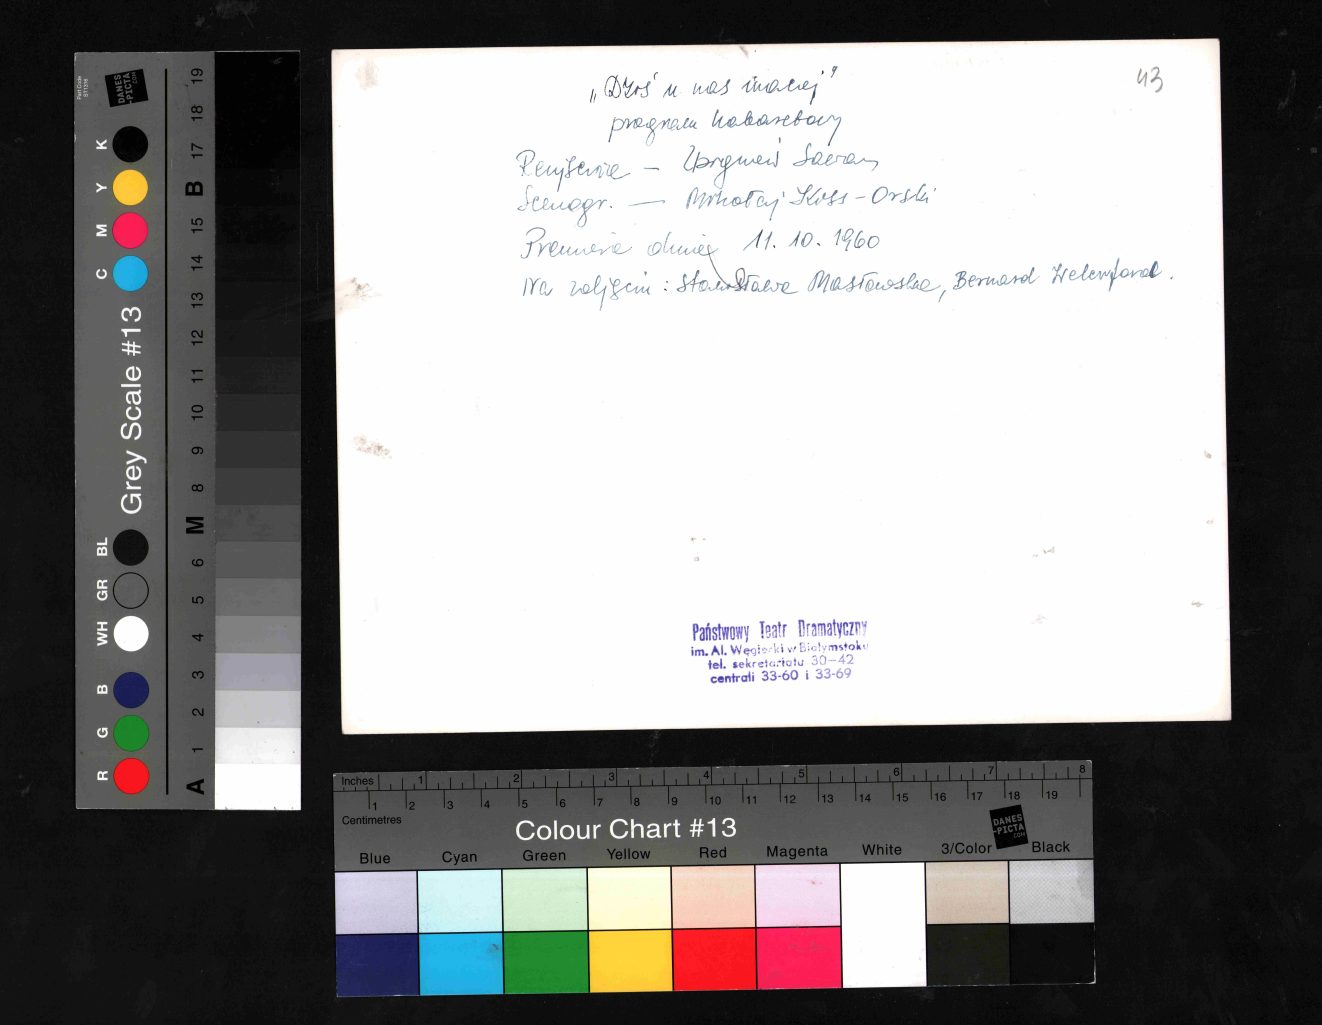 43
„Dziś u nas inaczej”
program kabaretowy
Reżyseria — Zbigniew Sawan
Scenogr. — Mikołaj Kiss-Orski
Premiera dnia 11. 10. 1960
Na zdjęciu: Stanisława Masłowska, Bernard
Państwowy Teatr Dramatyczny
im. Al. Węgierki w Białymstoku
tel. sekretariatu 30—42
centrali 33-60 i 33-69
DANES
-PICTA
.COM
Grey Scale #13
K
Y
M
C
BL
GR
WH
B
G
R
19
18
17
B
15
14
13
12
11
10
9
8
M
6
5
4
3
2
1
A
Inches 1 2 3 4 5 6 7 8
1 2 3 4 5 6 7 8 9 10 11 12 13 14 15 16 17 18 19
Centimetres
Colour Chart #13
DANES
-PICTA
.COM
Blue Cyan Green Yellow Red Magenta White 3/Color Black